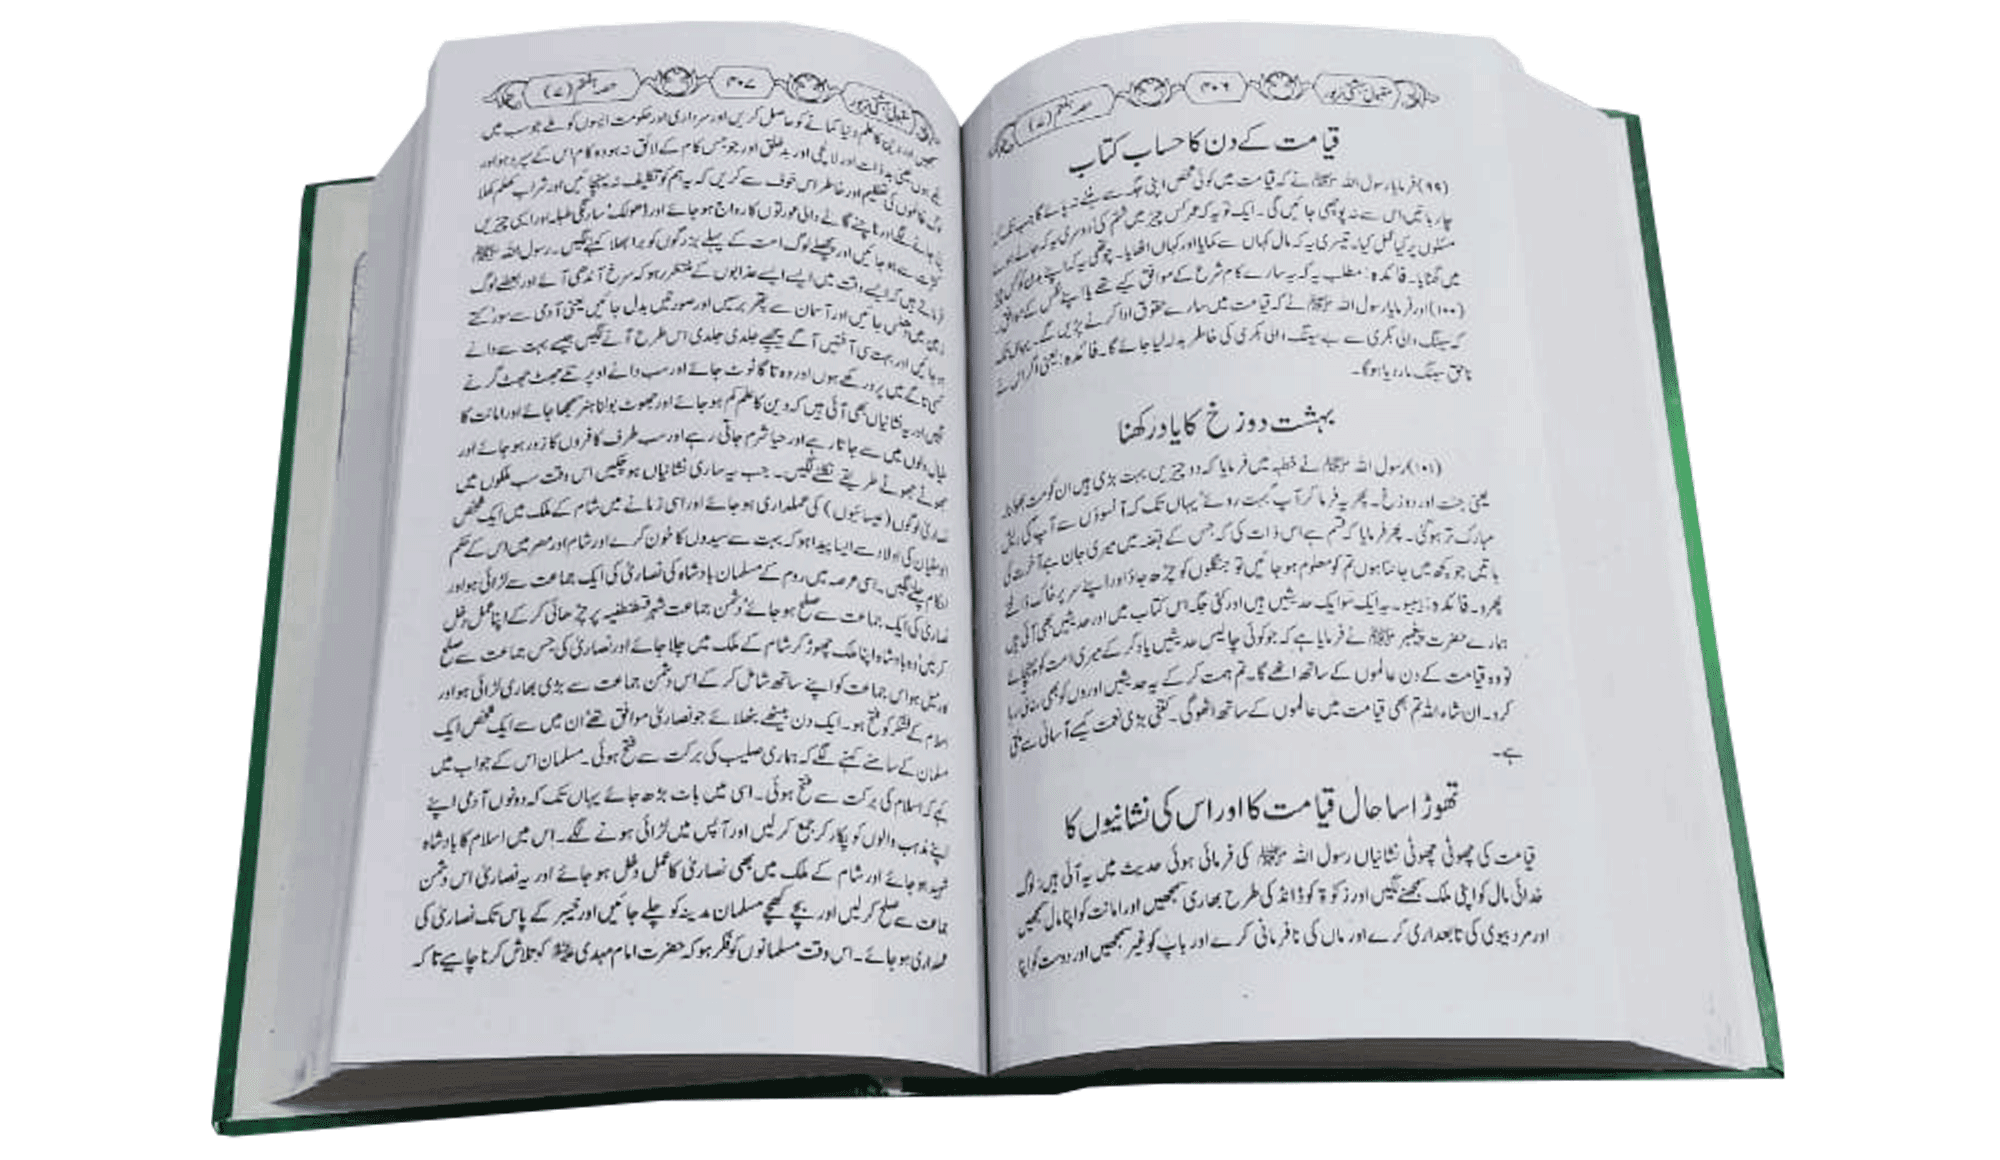 حصہ ہفتم (۷)
۳۰۶
مکمل بہشتی زیور
قیامت کے دن کا حساب کتاب
(۹۹) فرمایا رسول اللہ ﷺ نے کہ قیامت میں کوئی شخص اپنی جگہ سے ہٹنے نہ پائے گا جب تک کہ
چار باتیں اس سے نہ پوچھی جائیں گی۔ ایک تو یہ کہ عمر کس چیز میں ختم کی دوسری یہ کہ جانے ہوئے
مسئلوں پر کیا عمل کیا۔ تیسری یہ کہ مال کہاں سے کمایا اور کہاں اٹھایا۔ چوتھی یہ کہ اپنے بدن کو کس چیز
میں گھٹایا۔ فائدہ: مطلب یہ کہ یہ سارے کام شرع کے موافق کیے تھے یا اپنے نفس کے موافق۔
(۱۰۰) اور فرمایا رسول اللہ ﷺ نے کہ قیامت میں سارے حقوق ادا کرنے پڑیں گے۔ یہاں تک
کہ سینگ والی بکری سے بے سینگ والی بکری کی خاطر بدلہ لیا جائے گا۔ فائدہ: یعنی اگر اس نے
ناحق سینگ مار دیا ہوگا۔
بہشت دوزخ کا یاد رکھنا
(۱۰۱) رسول اللہ ﷺ نے خطبہ میں فرمایا کہ دو چیزیں بہت بڑی ہیں ان کو مت بھولنا۔
یعنی جنت اور دوزخ۔ پھر یہ فرما کر آپ بہت روئے یہاں تک کہ آنسوؤں سے آپ کی ریش
مبارک تر ہوگئی۔ پھر فرمایا کہ قسم ہے اس ذات کی کہ جس کے قبضہ میں میری جان ہے آخرت کی
باتیں جو کچھ میں جانتا ہوں تم کو معلوم ہو جائیں تو جنگلوں کو چڑھ جاؤ اور اپنے سر پر خاک ڈالتے
پھرو۔ فائدہ: بیبیو۔ یہ ایک سو ایک حدیثیں ہیں اور کئی جگہ اس کتاب میں اور حدیثیں بھی آئی ہیں
ہمارے حضرت پیغمبر ﷺ نے فرمایا ہے کہ جو کوئی چالیس حدیثیں یاد کر کے میری امت کو پہنچائے
تو وہ قیامت کے دن عالموں کے ساتھ اٹھے گا۔ تم ہمت کر کے یہ حدیثیں اوروں کو بھی سناتی رہا
کرو۔ ان شاء اللہ تم بھی قیامت میں عالموں کے ساتھ اٹھو گی۔ کتنی بڑی نعمت کیسے آسانی سے ملتی
ہے۔
تھوڑا سا حال قیامت کا اور اس کی نشانیوں کا
قیامت کی چھوٹی چھوٹی نشانیاں رسول اللہ ﷺ کی فرمائی ہوئی حدیث میں یہ آئی ہیں: لوگ
خدائی مال کو اپنی ملک سمجھنے لگیں اور زکوٰۃ کو ڈانڈ کی طرح بھاری سمجھیں اور امانت کو اپنا مال سمجھیں
اور مرد بیوی کی تابعداری کرے اور ماں کی نافرمانی کرے اور باپ کو غیر سمجھیں اور دوست کو اپنا
حصہ ہفتم (۷)
۳۰۷
مکمل بہشتی زیور
سمجھیں اور دین کا علم دنیا کمانے کو حاصل کریں اور سرداری اور حکومت ایسوں کو ملے جو سب میں
نکمے ہوں یعنی بدذات اور لالچی اور بدخلق اور جو جس کام کے لائق نہ ہو وہ کام اس کے سپرد ہو اور
لوگ ظالموں کی تعظیم اور خاطر اس خوف سے کریں کہ یہ ہم کو تکلیف نہ پہنچائیں اور شراب کھلم کھلا
پی جانے لگے اور ناچنے گانے والی عورتوں کا رواج ہو جائے اور ڈھولک' سارنگی طبلہ اور ایسی چیزیں
کثرت سے ہو جائیں اور پچھلے لوگ امت کے پہلے بزرگوں کو برا بھلا کہنے لگیں۔ رسول اللہ ﷺ
فرماتے ہیں کہ ایسے وقت میں ایسے ایسے عذابوں کے منتظر رہو کہ سرخ آندھی آئے اور بعضے لوگ
زمین میں دھنس جائیں اور آسمان سے پتھر برسیں اور صورتیں بدل جائیں یعنی آدمی سے سور' کتے
ہو جائیں اور بہت سی آفتیں آگے پیچھے جلدی جلدی اس طرح آنے لگیں جیسے بہت سے دانے
کسی تاگے میں پرو رکھے ہوں اور وہ تاگا ٹوٹ جائے اور سب دانے اوپر تلے جھٹ جھٹ گرنے
لگیں اور یہ نشانیاں بھی آئی ہیں کہ دین کا علم کم ہو جائے اور جھوٹ بولنا ہنر سمجھا جائے اور امانت کا
خیال دلوں میں سے جاتا رہے اور حیا شرم جاتی رہے اور سب طرف کافروں کا زور ہو جائے اور
جھوٹے جھوٹے طریقے نکلنے لگیں۔ جب یہ ساری نشانیاں ہو چکیں اس وقت سب ملکوں میں
نصاریٰ لوگوں (عیسائیوں) کی عملداری ہو جائے اور اسی زمانے میں شام کے ملک میں ایک شخص
ابوسفیان کی اولاد سے ایسا پیدا ہو کہ بہت سے سیدوں کا خون کرے اور شام اور مصر میں اس کے حکم
احکام چلنے لگیں۔ اسی عرصہ میں روم کے مسلمان بادشاہ کی نصاریٰ کی ایک جماعت سے لڑائی ہو اور
نصاریٰ کی ایک جماعت سے صلح ہو جائے' دشمن جماعت شہر قسطنطنیہ پر چڑھائی کر کے اپنا عمل دخل
کریں' وہ بادشاہ اپنا ملک چھوڑ کر شام کے ملک میں چلا جائے اور نصاریٰ کی جس جماعت سے صلح
اور میل ہو اس جماعت کو اپنے ساتھ شامل کر کے اس دشمن جماعت سے بڑی بھاری لڑائی ہو اور
اسلام کے لشکر کو فتح ہو۔ ایک دن بیٹھے بٹھلائے جو نصاریٰ موافق تھے' ان میں سے ایک شخص ایک
مسلمان کے سامنے کہنے لگے کہ ہماری صلیب کی برکت سے فتح ہوئی۔ مسلمان اس کے جواب میں
کہے کہ اسلام کی برکت سے فتح ہوئی۔ اسی میں بات بڑھ جائے یہاں تک کہ دونوں آدمی اپنے
اپنے مذہب والوں کو پکار کر جمع کر لیں اور آپس میں لڑائی ہونے لگے۔ اس میں اسلام کا بادشاہ
شہید ہو جائے اور شام کے ملک میں بھی نصاریٰ کا عمل دخل ہو جائے اور یہ نصاریٰ اس دشمن
جماعت سے صلح کر لیں اور بچے کھچے مسلمان مدینہ کو چلے جائیں اور خیبر کے پاس تک نصاریٰ کی
عملداری ہو جائے۔ اس وقت مسلمانوں کو فکر ہو کہ حضرت امام مہدی کو تلاش کرنا چاہیے تاکہ